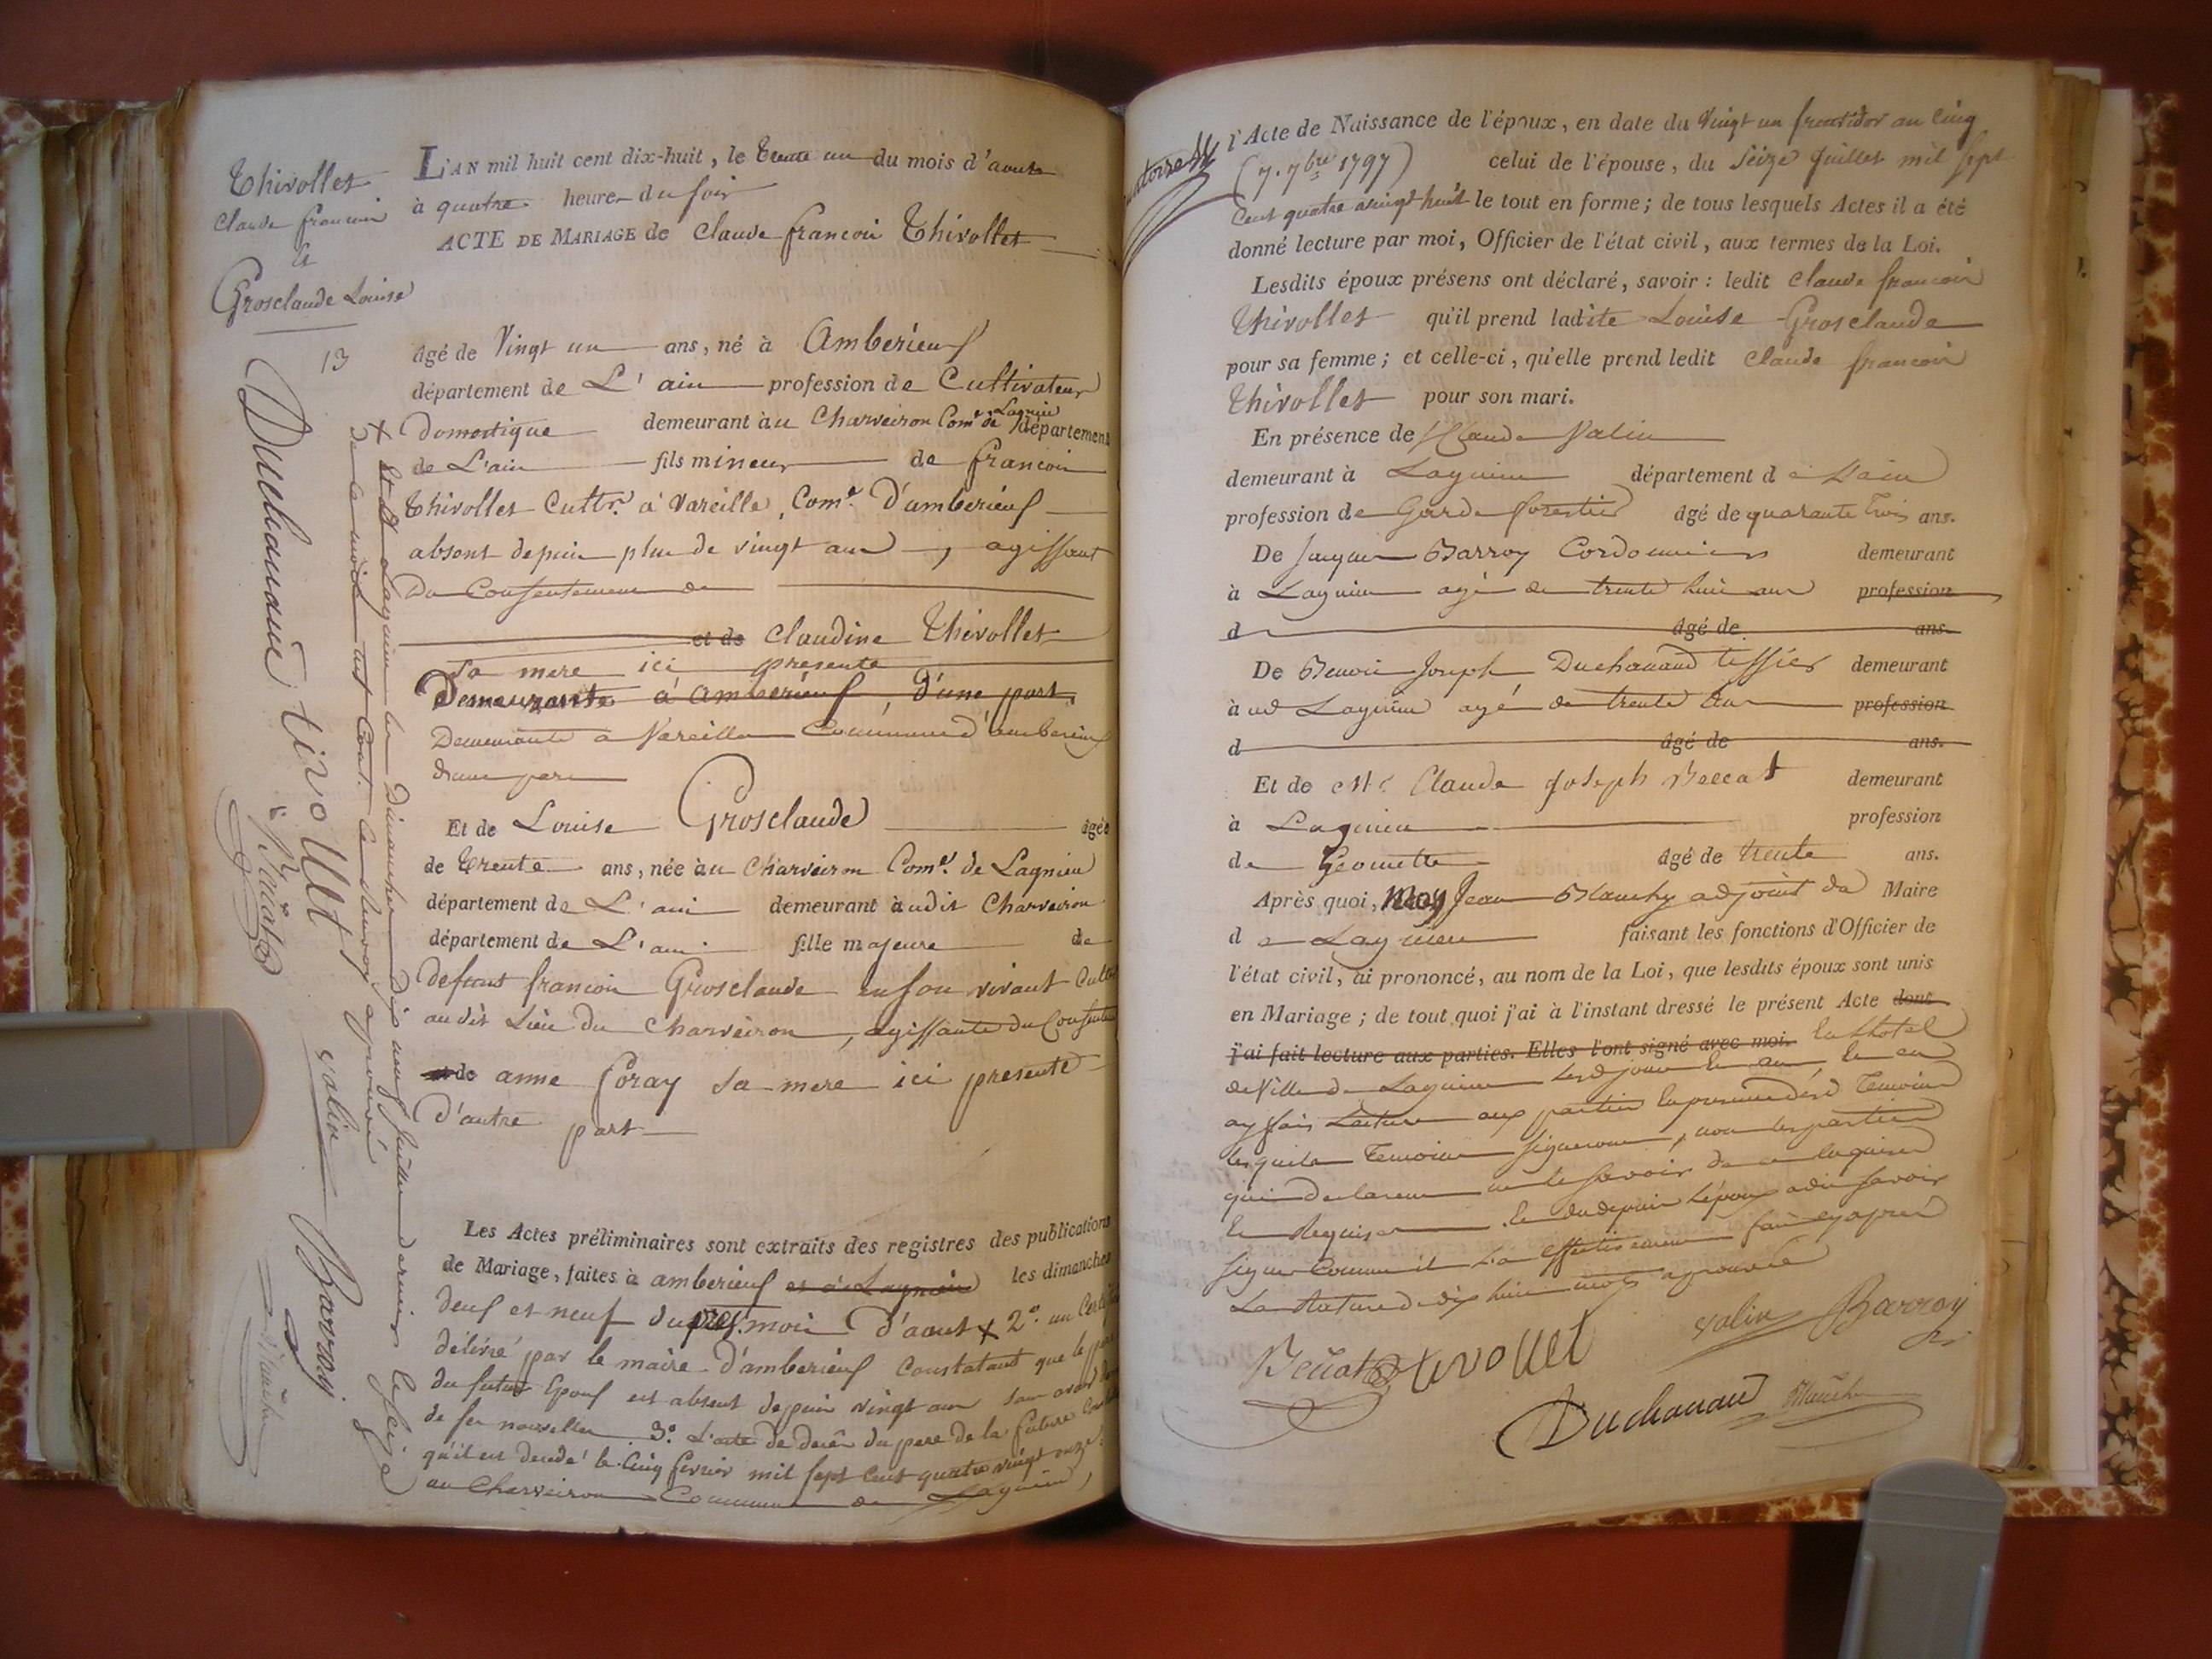 Thivollet
Claude francois
et
Grosclaude Louise
13
L'AN mil huit cent dix-huit, le trente un du mois d'aoust
à quatre heure du soir
ACTE DE MARIAGE de Claude francois Thivollet
âgé de Vingt un ans, né à Amberieuf
département de L'ain profession de Cultivateur
Domestique demeurant àu Charveiron Com.e de Lagnieu département
de L'ain fils mineur de francois
thivollet Cult.r à Vareille, Com.e D'amberieuf
absent depuis plus de vingt ans, agissant
du Consentement de
et de Claudine Thivollet
Sa mere ici presente
Demeurante à Amberieuf, d'une part,
Demeurante a Vareille Commune d'amberieuf
d'une part
Et de Louise Grosclaude âgée
de trente ans, née àu Charveiron Com.e de Lagnieu
département de L'ain demeurant àudit Charveiron
département de L'ain fille majeure de
deffunt francois Grosclaude en son vivant Cult
audit Lieu du Charveiron, agissante du Consentem
et de anne foray Sa mere ici presente
D'autre part
Les Actes préliminaires sont extraits des registres des publications
de Mariage, faites à amberieuf et à Lagnieu les dimanches
deuf et neuf du pres.t mois D'aoust x 2.o un Certif
délivré par le maire D'amberieuf Constatant que le pere
du futur Epouf est absent depuis vingt ans sans avoir
de ses nouvelles 3.o L'acte de decès du pere de la future
qu'il est decedé le Cinq fevrier mil sept Cent quatre vingt onze
au Charveiron Commune de Lagnieu,
x et à Lagnieu les Dimanches dix neuf juillet dernier le seize
de ce mois
approuvé
Duchanaud
tivollet
Benat
Valin
Barray
Blanchy
l'Acte de Naissance de l'époux, en date du Vingt un fructidor an Cinq
(7. 7bre 1797) celui de l'épouse, du Seize Juillet mil Sept
Cent quatre vingt huit le tout en forme; de tous lesquels Actes il a été
donné lecture par moi, Officier de l'état civil, aux termes de la Loi.
Lesdits époux présens ont déclaré, savoir: ledit Claude francois
Thivollet qu'il prend ladite Louise Grosclaude
pour sa femme; et celle-ci, qu'elle prend ledit Claude francois
Thivollet pour son mari.
En présence de Claude Valin
demeurant à Lagnieu département de L'ain
profession de Garde forestier âgé de quarante trois ans.
De Jacques Barroy Cordonnier demeurant
à Lagnieu agé de trente huit ans profession
d âgé de ans.
De Benoit Joseph Duchanaud tessier demeurant
à ud Lagnieu agé de trente ans profession
d âgé de ans.
Et de Mr Claude Joseph Beccat demeurant
à Lagnieu profession
de Géomettre âgé de trente ans.
Après quoi, moy Jean Blanchy adjoint du Maire
de Lagnieu faisant les fonctions d'Officier de
l'état civil, ai prononcé, au nom de la Loi, que lesdits époux sont unis
en Mariage; de tout quoi j'ai à l'instant dressé le présent Acte dont
j'ai fait lecture aux parties. Elles l'ont signé avec moi. En l'hotel
de Ville de Lagnieu Lesd jour et an, et en
ay fait Lecture aux parties En presence desd Temoins
Lesquels Temoins Signeront, non les parties
qui declarent ne le savoir de ce enquises
et Requises. Et du depuis L'époux a dit savoir
signer Comme il L'a effectivement fait cy après
La Rature de dix huit mots approuvée
Benat tivollet Valin Barray
Duchanau Blanchy